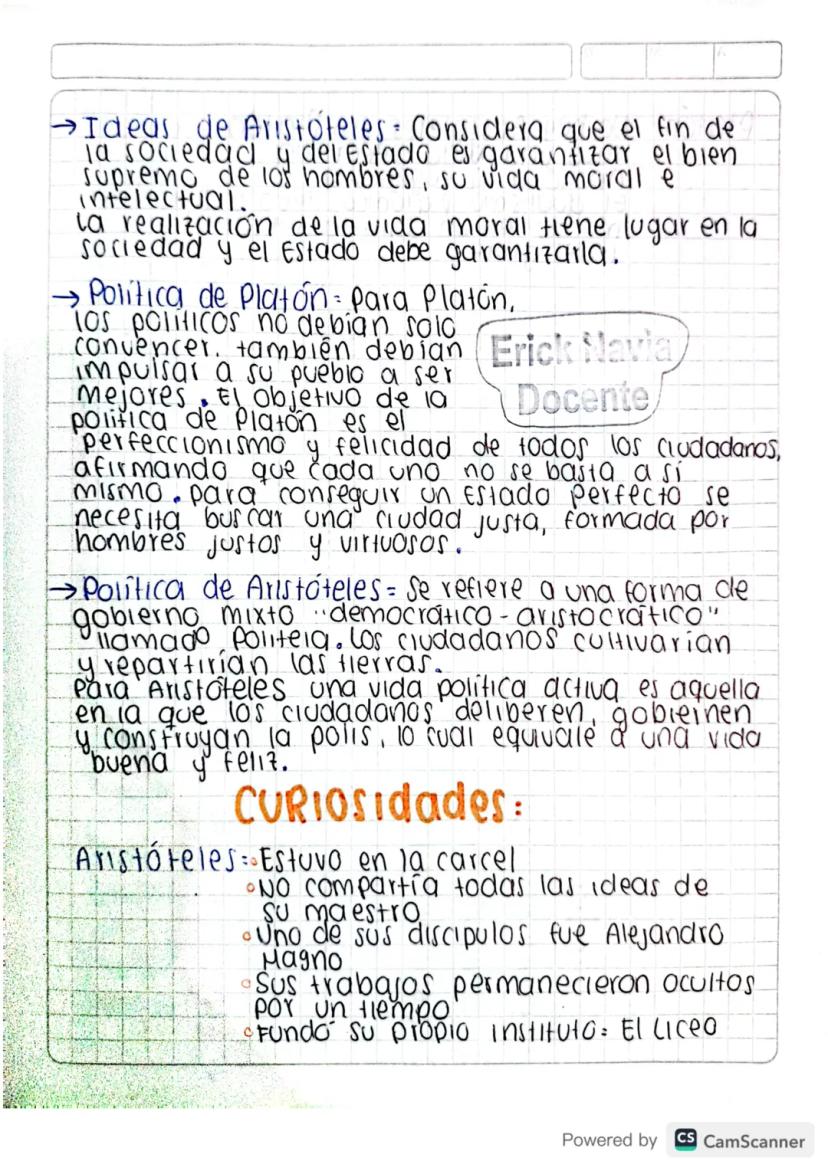 → Ideas de Aristóteles: Considera que el fin de
la sociedad y del Estado es garantizar el bien
supremo de los hombres, su vida moral e
intelectual.
La realización de la vida moral tiene lugar en la
sociedad y el Estado debe garantizarla.
→ Política de Platón: Para Platón,
los políticos no debían solo
convencer, también debían
impulsar a su pueblo a ser
mejores. El objetivo de la
política de Platón es el
perfeccionismo y felicidad de todos los ciudadanos,
afirmando que cada uno no se basta a sí
mismo. para conseguir un Estado perfecto se
necesita buscar una ciudad justa, formada por
hombres justos y virtuosos.
Erick Navia
Docente
→ Política de Aristóteles: Se refiere a una forma de
gobierno mixto "democrático - aristocrático"
llamado Politeia. Los ciudadanos cultivarían
y repartirían las tierras.
Para Aristóteles una vida política activa es aquella
en la que los ciudadanos deliberen, gobiernen
y construyan la polis, lo cual equivale a una vida
buena y feliz.
CURIOSIdades:
Aristóteles: ∘ Estuvo en la carcel
∘ No compartía todas las ideas de
su maestro
∘ Uno de sus discipulos fue Alejandro
Magno
∘ Sus trabajos permanecieron ocultos
por un tiempo
∘ Fundó su propio instituto: El Liceo
Powered by CS CamScanner